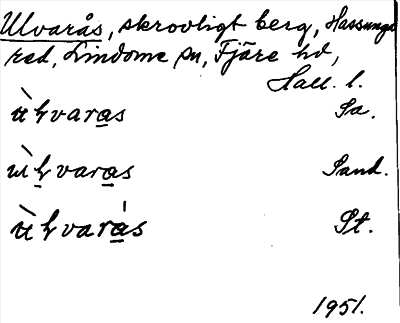 Ulvarås, skrovligt berg, Hassungs
red, Lindome sn, Fjäre hd,
Hall. l.
ù̀ɫvara̲s Sa.
ɯ̀ɫ̲vara̲s Sand.
ù̀ɫvarà̲s St.
1951.